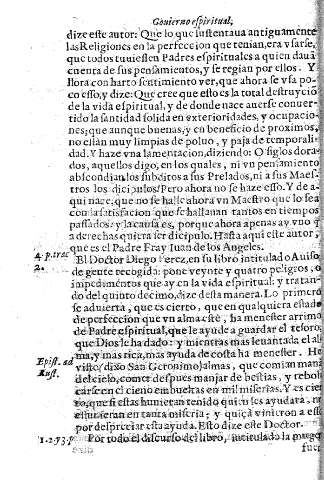 Gouierno espiritual,
dize este autor: Que lo que sustentaua antiguamente
las Religiones en la perfeccion que tenian, era vsarse,
que todos tuuiessen Padres espirituales a quien dauã
cuenta de sus pensamientos, y se regian por ellos. Y
llora con harto sentimiento ver, que ahora se vsa po-
co esso, y dize: Que cree que esto es la total destruyciõ
de la vida espiritual, y de donde nace auerse conuer-
tido la santidad solida en exterioridades, y ocupacio-
nes; que aunque buenas, y en beneficio de proximos,
no estàn muy limpias de poluo, y paja de temporali-
dad. Y haze vna lamentacion, diziendo: O siglos dora-
dos, aquellos digo, en los quales, ni vn pensamiento
abscondian los subditos a sus Prelados, ni a sus Maes-
tros los dicipulos! Pero ahora no se haze esso. Y de a-
qui nace, que no se halle ahora vn Maestro que lo sea
con la satisfacion que se hallauan tantos en tiempos
passados: y la causa es, porque ahora apenas ay vno q̃
a derechas quiera ser dicipulo. Hasta aqui este autor,
que es el Padre Fray Iuan de los Angeles.
4. p. trac
2.
El Doctor Diego Perez, en su libro intitulado Auiso
de gente recogida: pone veynte y quatro peligros, o
impedimentos que ay en la vida espiritual: y tratan-
do del quinto decimo, dize desta manera. Lo primero
se aduierta, que es cierto, que en qualquier estado
de perfeccion que vn alma estè, ha menester arrimo
de Padre espiritual, que le ayude a guardar el tesoro
que Dios le ha dado: y mientras mas leuantada el al
ma, y mas rica, mas ayuda de costa ha menester. He
Epist. ad
Rust.
visto (dixo San Geronimo) almas, que comian manà
del cielo, comer despues manjar de bestias, y rebol
carse en el cieno embueltas en mil miserias. Y es cier
to, que si estas huuieran tenido quien les ayudara, no
estuuieran en tanta miseria; y quiçà vinieron a esso
por despreciar esta ayuda. Esto dize este Doctor.
1. 2. 73. p
Por todo el discurso del libro, intitulado la
fuer